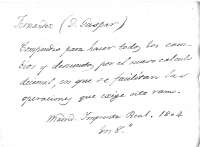 Fernandez (D. Gaspar)
Compendio para hacer todos los cam-
bios y descuentos, por el nuevo calculo
decimal, en que se facilitan las
operaciones que exige este ramo.
Madrid Imprenta Real. 1804
en 8.º